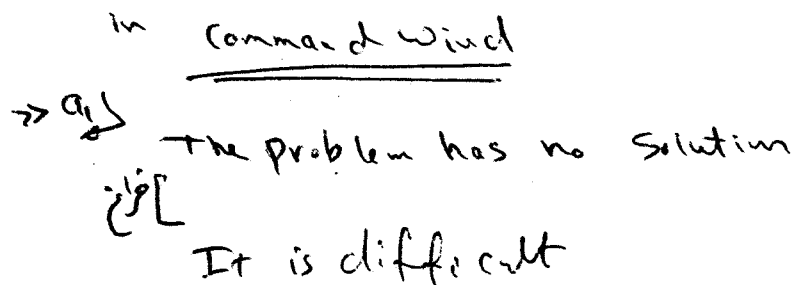 in Command Wind
>> a1
The problem has no Solution
فراغ [
It is difficult